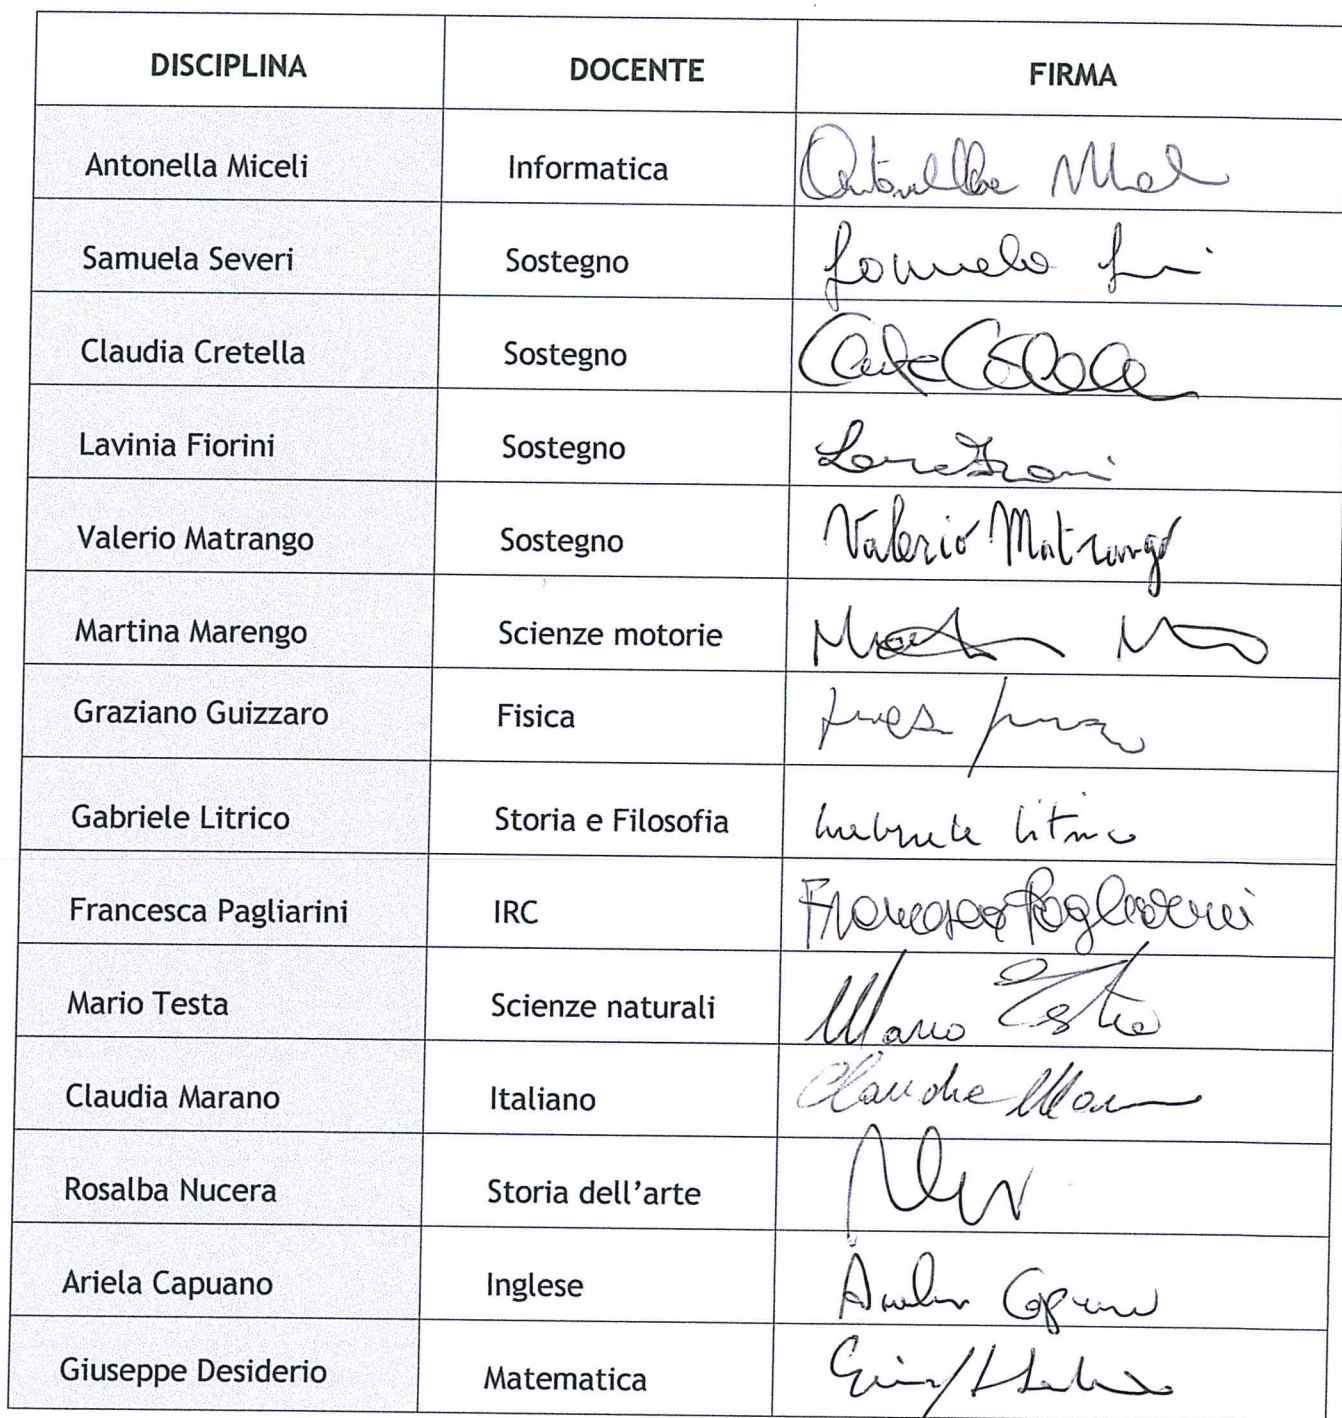 DISCIPLINA DOCENTE FIRMA
Antonella Miceli Informatica Antonella
Samuela Severi Sostegno Samuela
Claudia Cretella Sostegno
Lavinia Fiorini Sostegno
Valerio Matrango Sostegno Valerio Matrango
Martina Marengo Scienze motorie
Graziano Guizzaro Fisica
Gabriele Litrico Storia e Filosofia Gabriele Litrico
Francesca Pagliarini IRC Francesca Pagliarini
Mario Testa Scienze naturali Mario Testa
Claudia Marano Italiano Claudia
Rosalba Nucera Storia dell’arte
Ariela Capuano Inglese
Giuseppe Desiderio Matematica